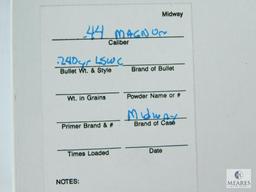 Midway
.44 MAGNUM
Caliber
.240gr LSWC
Bullet Wt. & Style Brand of Bullet
Wt. in Grains Powder Name or #
Midway
Primer Brand & # Brand of Case
Times Loaded Date
NOTES:
MEARES